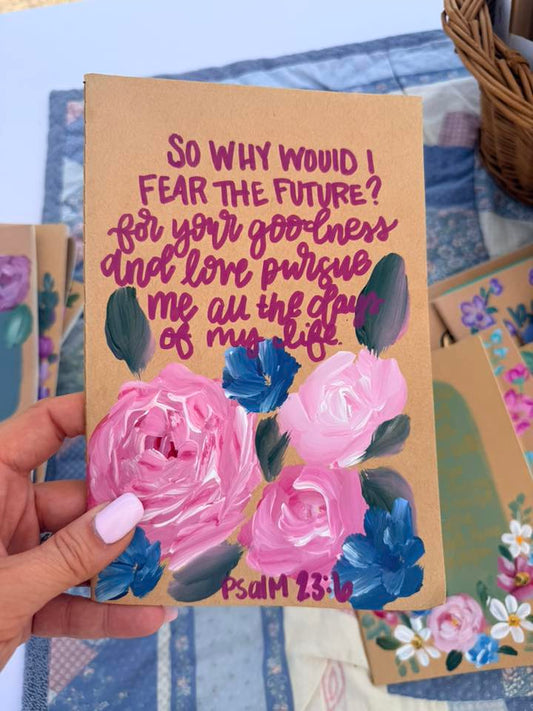 SO WHY WOULD I
FEAR THE FUTURE?
for your goodness
and love pursue
me all the days
of my life.
Psalm 23:6